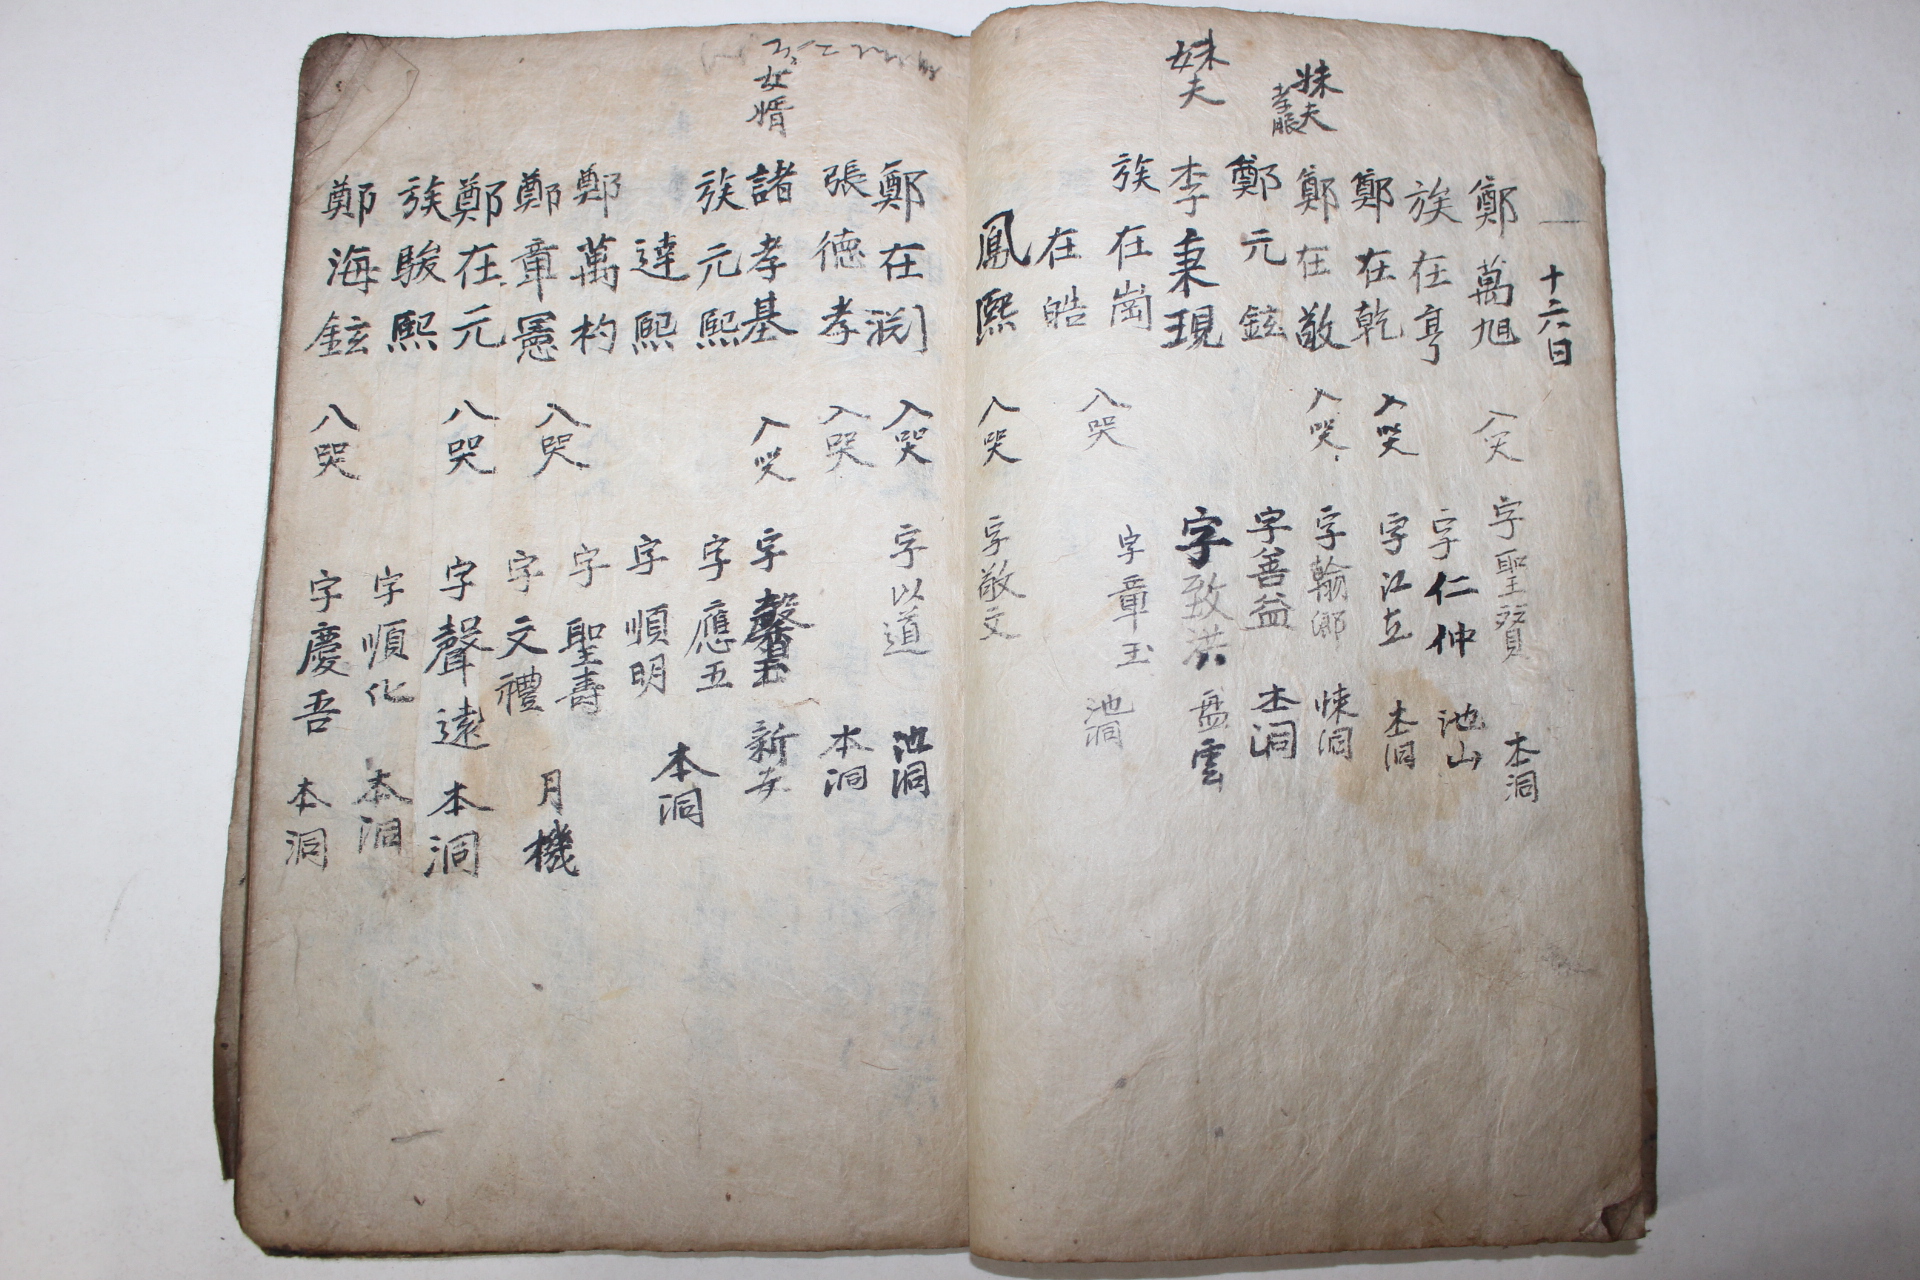 十六日
鄭萬旭 入哭 字聖賢 本洞
族在亨 字仁仲 池山
鄭在乾 入哭 字江立 本洞
妹夫 孝服 鄭在敬 入哭 字翰卿 悚洞
鄭元鉉 字善益 本洞
妹夫 李秉現 字致洪 盤雲
族在崗 入哭 字章玉 池洞
在皓
鳳熙 入哭 字敬文
鄭在渕 入哭 字以道 池洞
張德孝 入哭 本洞
女婿 諸孝基 入哭 字馨玉 新安
族元熙 字應五
達熙 字順明 本洞
鄭萬杓 入哭 字聖壽
鄭章憲 字文禮 月機
鄭在元 入哭 字聲遠 本洞
族駿熙 字順化 本洞
鄭海鉉 入哭 字慶吾 本洞